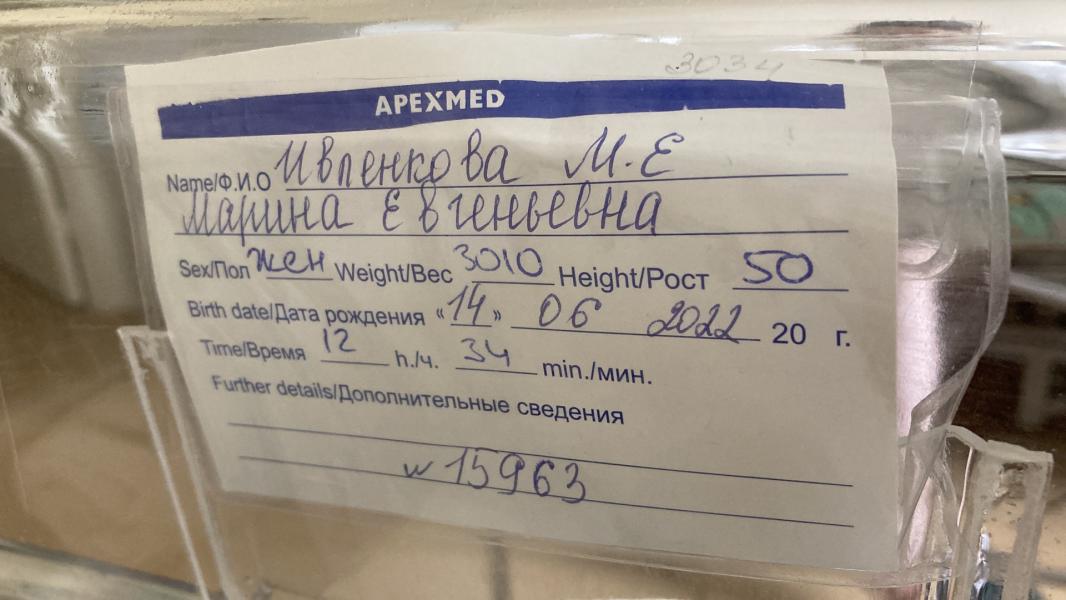 3034
APEXMED
Name/Ф.И.О Ивленкова М.Е
Марина Евгеньевна
Sex/Пол жен Weight/Вес 3010 Height/Рост 50
Birth date/Дата рождения «14» 06 2022 20 г.
Time/Время 12 h./ч. 34 min./мин.
Further details/Дополнительные сведения
№ 15963